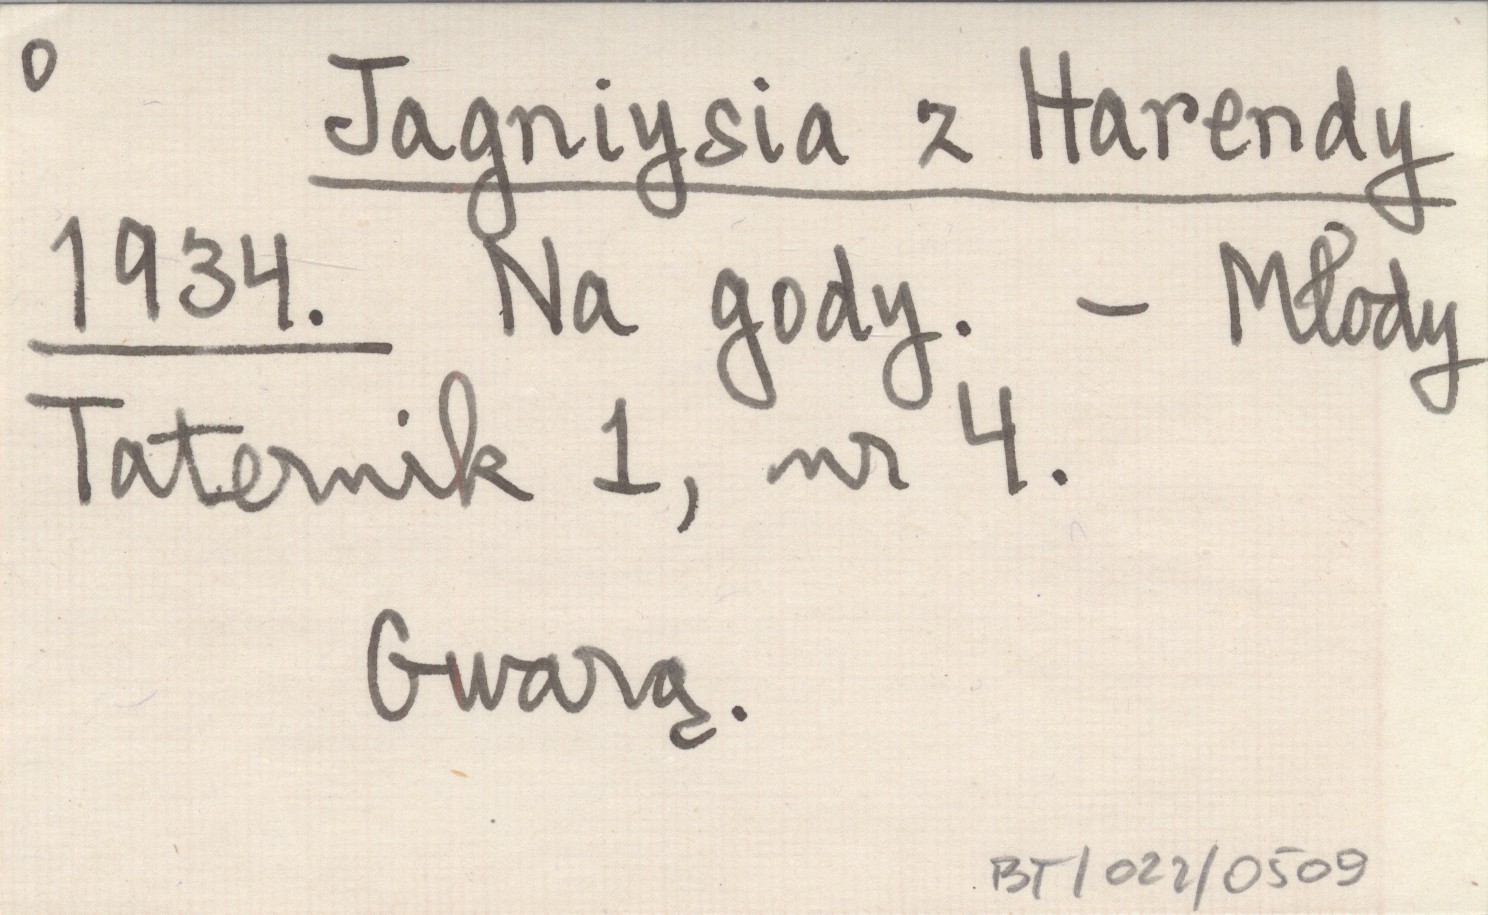 o Jagniysia z Harendy
1934. Na gody. – Młody
Taternik 1, nr 4.
Gwarą.
BT/022/0509